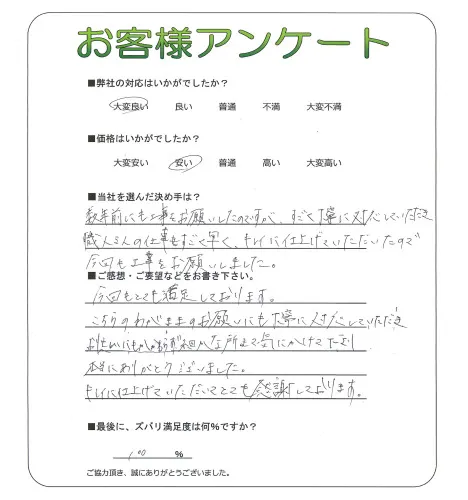 お客様アンケート
■弊社の対応はいかがでしたか？
大変良い 良い 普通 不満 大変不満
■価格はいかがでしたか？
大変安い 安い 普通 高い 大変高い
■当社を選んだ決め手は？
数年前にも工事をお願いしたのですが、すごく丁寧に対応していただき
職人さんの仕事もすごく早く、キレイに仕上げていただいたので
今回も工事をお願いしました。
■ご感想・ご要望などをお書き下さい。
今回もとても満足しております。
こちらのわがままのお願いにも丁寧に対応していただき
細かな所まで気にかけて下さり
本当にありがとうございました。
キレイに仕上げていただいてとても感謝しております。
■最後に、ズバリ満足度は何％ですか？
100 ％
ご協力頂き、誠にありがとうございました。